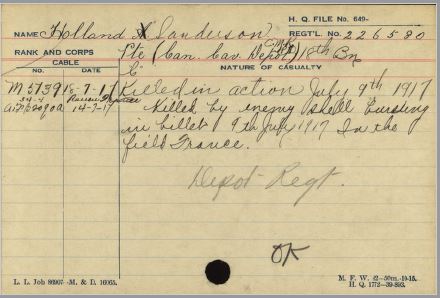 H. Q. FILE No. 649-
NAME Holland A Sanderson REGT'L. No. 226580
RANK AND CORPS Pte (Can. Cav. Depot) 18th Bn
CABLE NATURE OF CASUALTY
NO. DATE
M 5739 18-7-17 Killed in action July 9th 1917
14-7-17 Killed by enemy shell bursting
in billet 9th July 1917 In the
field France.
Depot Regt.
OK
L. L. Job 86907—M. & D. 16065. M. F. W. 42—50m.-10-15.
H. Q. 1772-39-893.